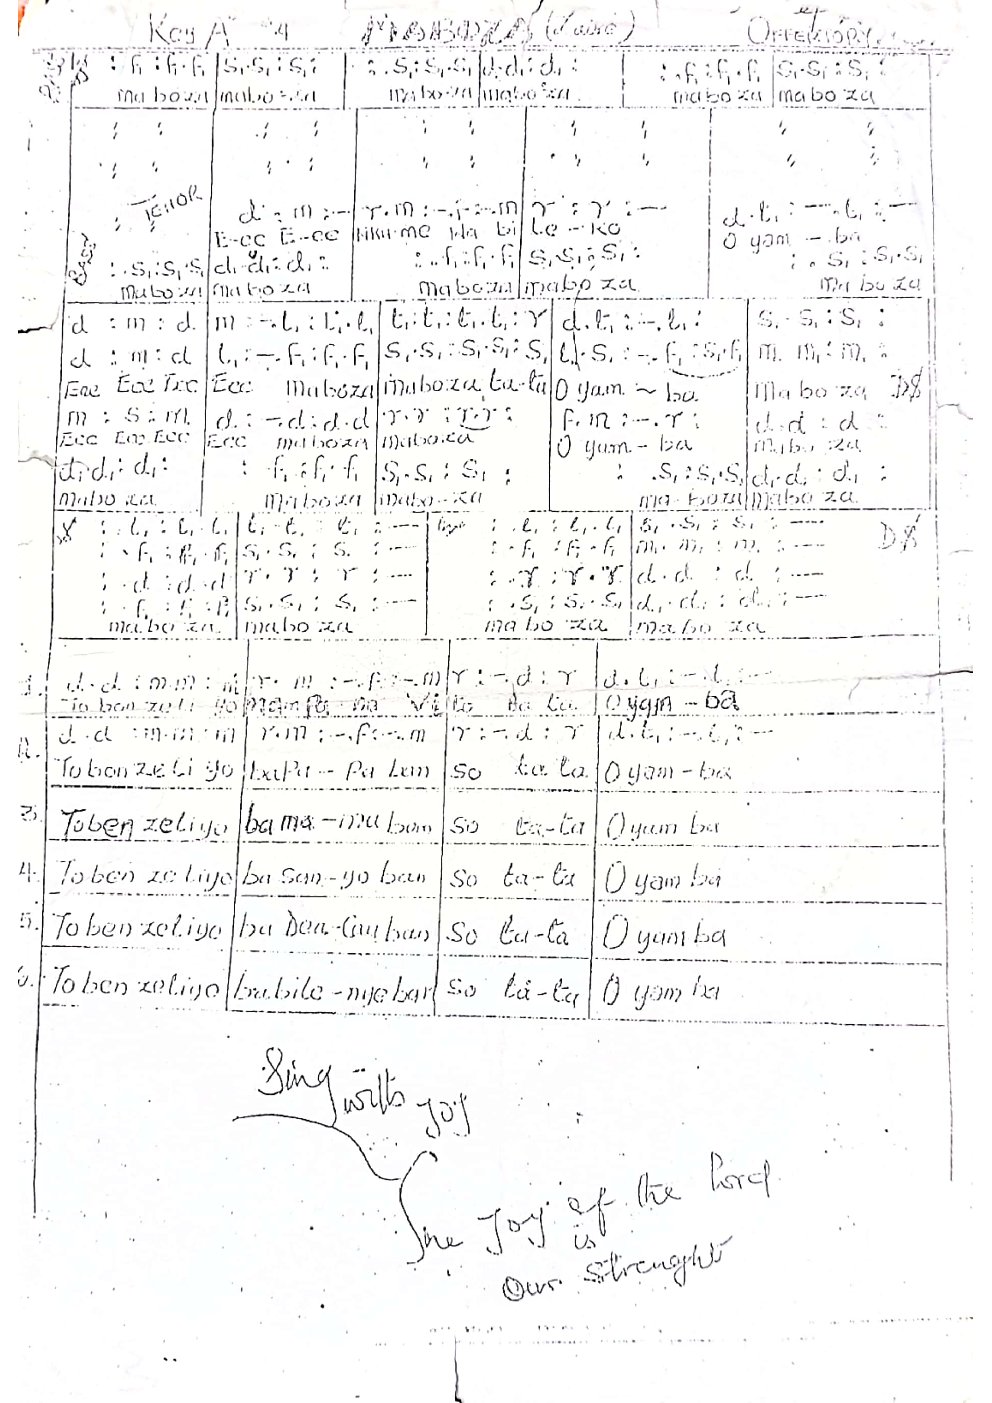 Key A 4 MABOZA (Zaire) Offertory
: f₁ : f₁. f₁ | s₁. s₁ : s₁ : | : . s₁ : s₁. s₁ | d. d₁ : d₁ : | : . f₁ : f₁. f₁ | s₁. s₁ : s₁ :
ma bo za | ma bo - za | ma bo za | ma bo za | ma bo za | ma bo za
TENOR
d : m : - | r. m : -. f : -. m | r : r : — | d. t₁ : —. t₁ : —
E-ee E-ee | Nku-me Na bi | le - ko | O yam - ba
Bass
: . s₁ : s₁. s₁ | d₁. d₁ : d₁ : | : . f₁ : f₁. f₁ | s₁. s₁ : s₁ : | : . s₁ : s₁. s₁
ma bo za | ma bo za | ma bo za | ma bo za | ma bo za
d : m : d | m : -. t₁ : t₁. t₁ | t₁. t₁ : t₁. t₁ : r | d. t₁ : -. t₁ : | s₁. s₁ : s₁ :
d : m : d | t₁ : -. f₁ : f₁. f₁ | s₁. s₁ : s₁. s₁ : s₁ | t₁. s₁ : -. f₁ : s₁. f₁ | m₁. m₁ : m₁ :
Eee Eee Eee | Eee Maboza | Maboza, ta-ta | O yam ~ ba | Ma bo za D.S
m : s : m | d : -. d : d. d | r. r : r. r : | f. m : -. r : | d. d : d :
Eee Eee Eee | Eee maboza | maboza | O yam - ba | Ma bo za
d₁. d₁ : d₁ : | : . f₁ : f₁. f₁ | s₁. s₁ : s₁ : | : . s₁ : s₁. s₁ | d₁. d₁ : d₁ :
Mabo za | Ma bo za | mabo - za | ma - boza | Mabo za
: . t₁ : t₁. t₁ | t₁. t₁ : t₁ : — | : . t₁ : t₁. t₁ | s₁. s₁ : s₁ : —
: . f₁ : f₁. f₁ | s₁. s₁ : s₁ : — | : . f₁ : f₁. f₁ | m₁. m₁ : m₁ : — D.S
: . d : d. d | r. r : r : — | : . r : r. r | d. d : d : —
: . f₁ : f₁. f₁ | s₁. s₁ : s₁ : — | : . s₁ : s₁. s₁ | d₁. d₁ : d₁ : —
ma bo za | ma bo za | ma bo za | ma bo za
1. d. d : m. m : m | r. m : -. f : -. m | r : -. d : r | d. t₁ : -. t₁ : -
To ben ze li yo | mampa na Vi | ta ta | O yam - ba
2. d. d : m. m : m | r. m : -. f : -. m | r : -. d : r | d. t₁ : -. t₁ : -
To ben ze li yo | ba Pa - Pa ban | so ta ta | O yam - ba
3. To ben ze li yo | ba ma - ma ban | so ta-ta | O yam ba
4. To ben ze li yo | ba San - yo ban | so ta-ta | O yam ba
5. To ben ze li yo | ba Dea - ban | so ta-ta | O yam ba
6. To ben ze li yo | ba bile - nge ban | so ta-ta | O yam ba
Sing with joy
The Joy of the Lord
is
Our Strenght